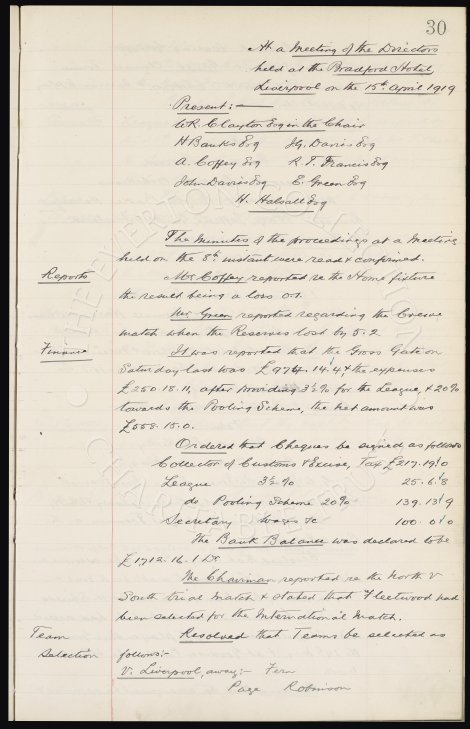 30
At a Meeting of the Directors
held at the Bradford Hotel,
Liverpool on the 15th April 1919
Present:-
W.R. Clayton Esq in the Chair
H Banks Esq J.G. Davies Esq
A. Coffey Esq R.T. Francis Esq
John Davies Esq E. Green Esq
H. Halsall Esq
The Minutes of the proceedings at a Meeting
held on the 8th instant were read & confirmed.
Reports
Mr Coffey reported re the Home fixture
the result being a loss 0.1.
Mr Green reported regarding the Crewe
match when the Reserves lost by 5.2
Finance
It was reported that the Gross Gate on
Saturday last was £974.14.4, & the expenses
£250.18.11, after providing 3½% for the League, & 20%
towards the Pooling Scheme, the net amount was
£558.15.0.
Ordered that Cheques be signed as follows
Collector of Customs & Excise, Tax £217.19.0
League 3½% 25.6.8
do Pooling Scheme 20% 139.13.9
Secretary Wages &c 100.0.0
The Bank Balance was declared to be
£1712.16.1 Dr
The Chairman reported re the North v
South trial match & stated that Fleetwood had
been selected for the International Match.
Team
Selection
Resolved that Teams be selected as
follows:-
V. Liverpool, away:- Fern
Page Robinson